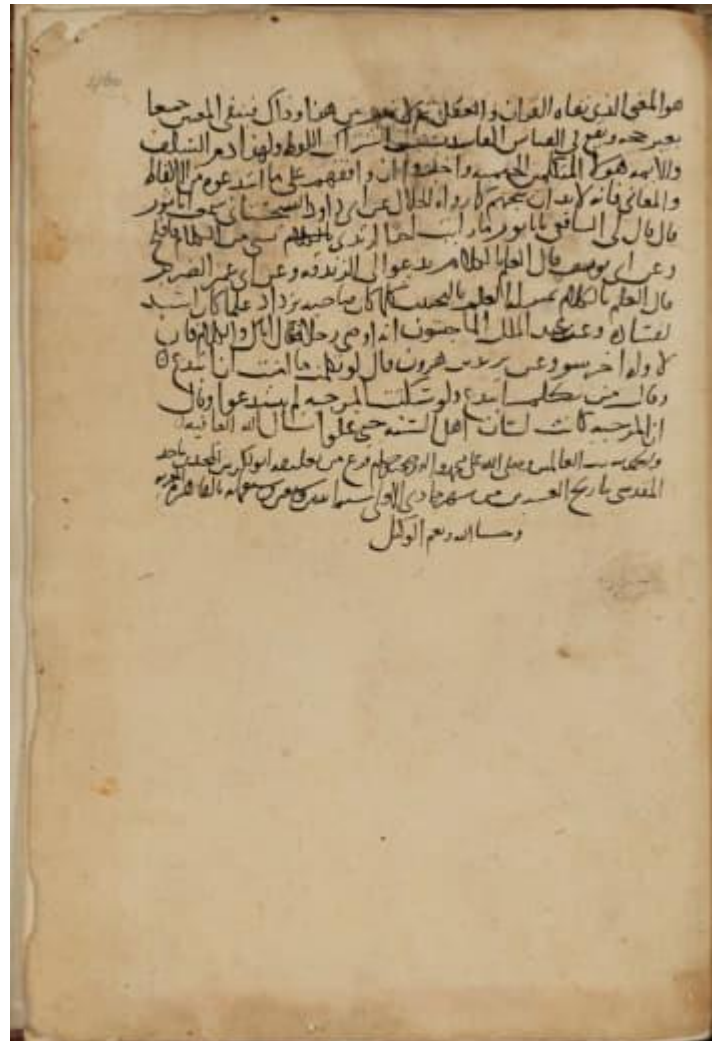 هو المعنى الذي نفاه القران والعقل ثم لا يميز بين هذا وذاك فينفي المعنيين جميعا
بغير حجه ويقع في القياس الفاسد بسبب اشتراك اللفظ ولهذا ذم السلف
والائمه هولا المتكلمين الجهميه وادخلوا من وافقهم على ما ابتدعوه من الالفاظ
والمعاني فانه لا بد ان كما رواه الخلال عن ابي داود السجستاني ابا ثور
قال قال لي الشافعي يابا ثور ما رايت احدا ارتدى شي من الكلام فافلح
وعن ابي يوسف قال العلم بالكلام يدعو الى الزندقه وعن ابي عمر الضرير
قال العلم بالكلام بمنزله العلم بالتنجيم كلما كان صاحبه يزداد علما كان اشد
لفساده وعن عبد الملك الماجشون انه اوصى رجلا فقال اياك والكلام فان
لاوله اخر سو وعن يزيد بن هرون قال لو
وقال من تكلم ابتدع ولو سكتت المرجيه لم يبتدعوا وقال
ان المرجيه كانت لسان اهل السنه حتى غلوا نسال الله العافيه
والحمد لله رب العالمين وصلى الله على محمد واله وصحبه وسلم فرغ من تعليقه ابو بكر بن
المقدسي بتاريخ العشرين من شهر جمادى الاولى سنه وسبعمايه بالقاهره
وحسبنا الله ونعم الوكيل